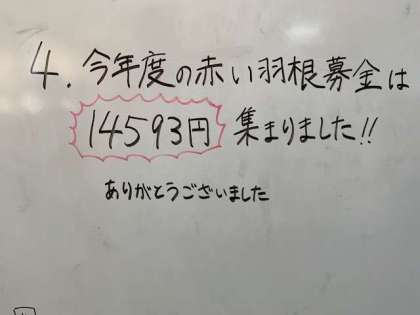 4. 今年度の赤い羽根募金は
14593円 集まりました!!
ありがとうございました